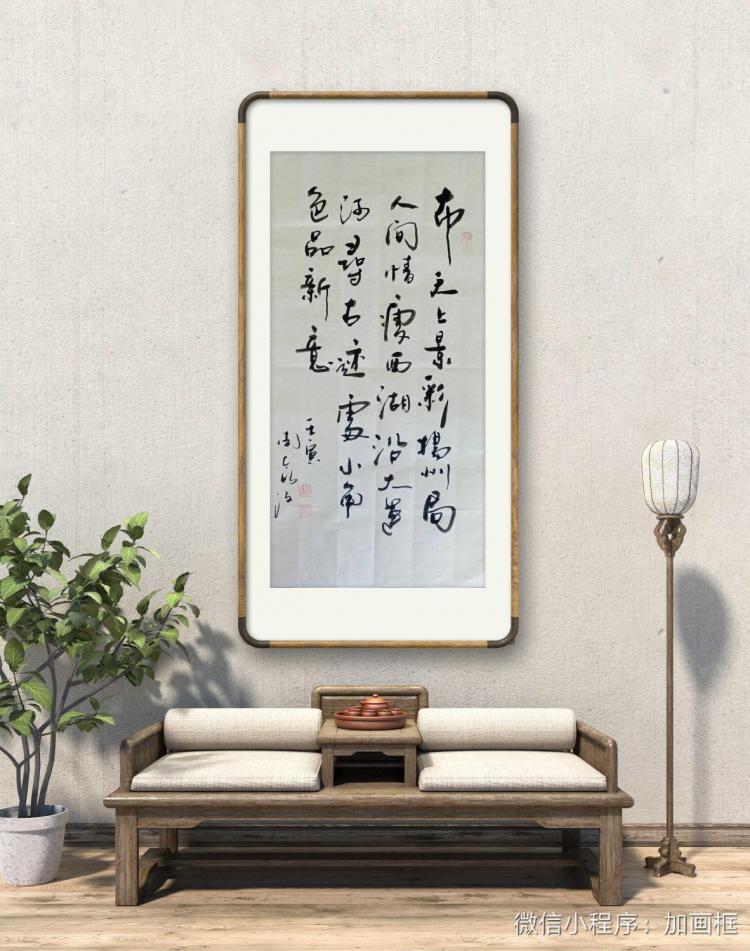 上景彩揚州局
人间情瘦西湖沿大運
河尋古迹處小角
色品新意
壬寅
周
微信小程序：加画框